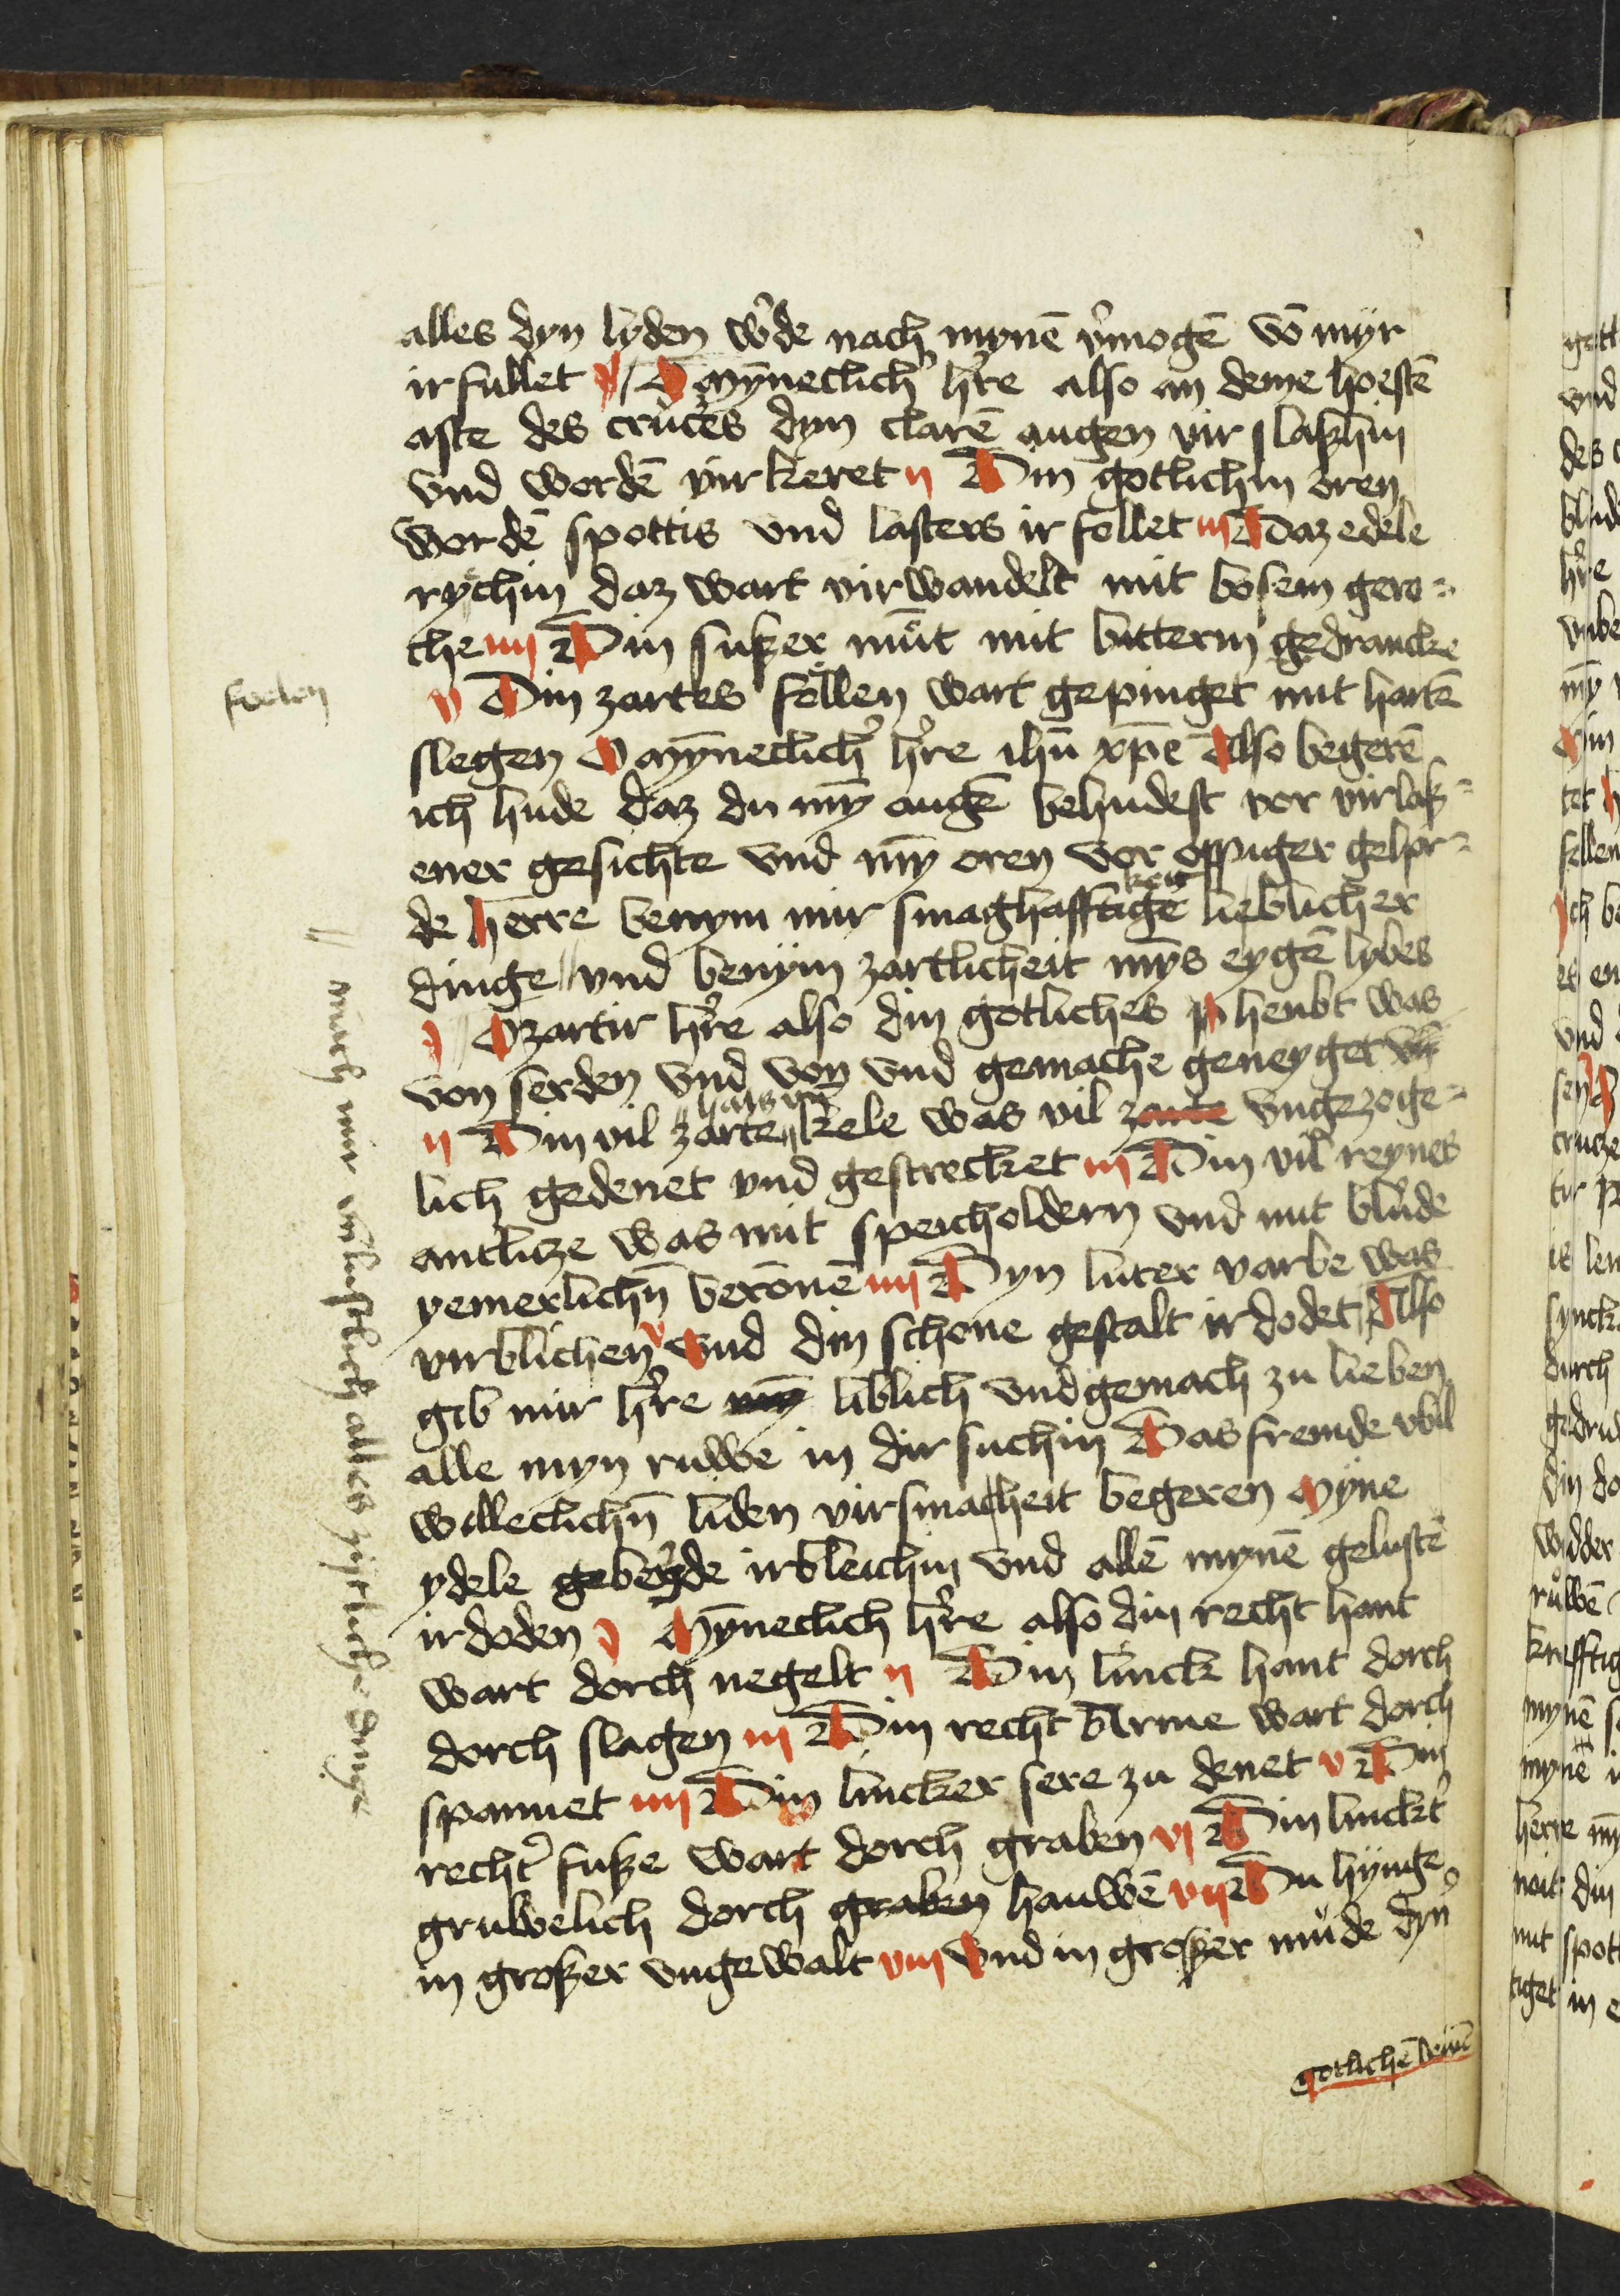 alles dyn lyden w'de nach mynē v'mogē vō myr
ir fullet j O mȳneclich' h're also an deme hoestē
aste des crůces dyn clarē augen vir slaßhin
vnd wordē vir keret ij Din gotlichin oren
wordē spottis vnd lasters ir follet iij Daz edele
rychin daz wart vir wandelt mit bosem gero=
che iiij Din sußer můt mit bitterm gedrancke
v Din zartes föllen wart gepinget mit hartē
slegen O mȳneclich' h're ihū xp̄e Also begerē
ich hude daz du mȳ augē behudest vor virlaß=
ener gesichte vnd mȳ oren vor oppiger gehor=
de herre benym mir smaghafftigekeit lieblicher
dinge vnd benym zartlicheit mȳs eygē lybes
j O zartir h're also din gotliches heubt was
von serden vnd von vnd gemache geneyget vn̄
ij Din vil zarte hals vn̄ kele was vil zarte vngezoge=
lich gedenet vnd gestrecket iij Din vil reynes
antlitze was mit speicholdern vnd mit blůde
yemerlichn̄ berōnē iiij Dyn luter varbe was
virblichen v vnd din schone gestalt ir dodet Also
gib mir h're mȳ liblich vndgemach zu lieben
alle myn ruwe in dir suchin Das fremde vbil
willeclichn̄ liden virsmacheit begeren Myne
ydele geberde irbleichin vnd allē mynē gelustē
ir doden j Mȳneclich h're also din recht hant
wart dorch negelt ij Din linck hant dorch
dorch slagen iij Din recht Arme wart dorch
spannet iiij Din lincker sere zu denet v Din
recht' fuße wart dorch graben vj Din linckt'
gruwelich dorch graben hauwē vij Du hynge
in großer vngewalt viij vnd in großer můde dyn
gotlichē beinē
foelen
mach mir vn̄lustlich alles zijtliche dinge